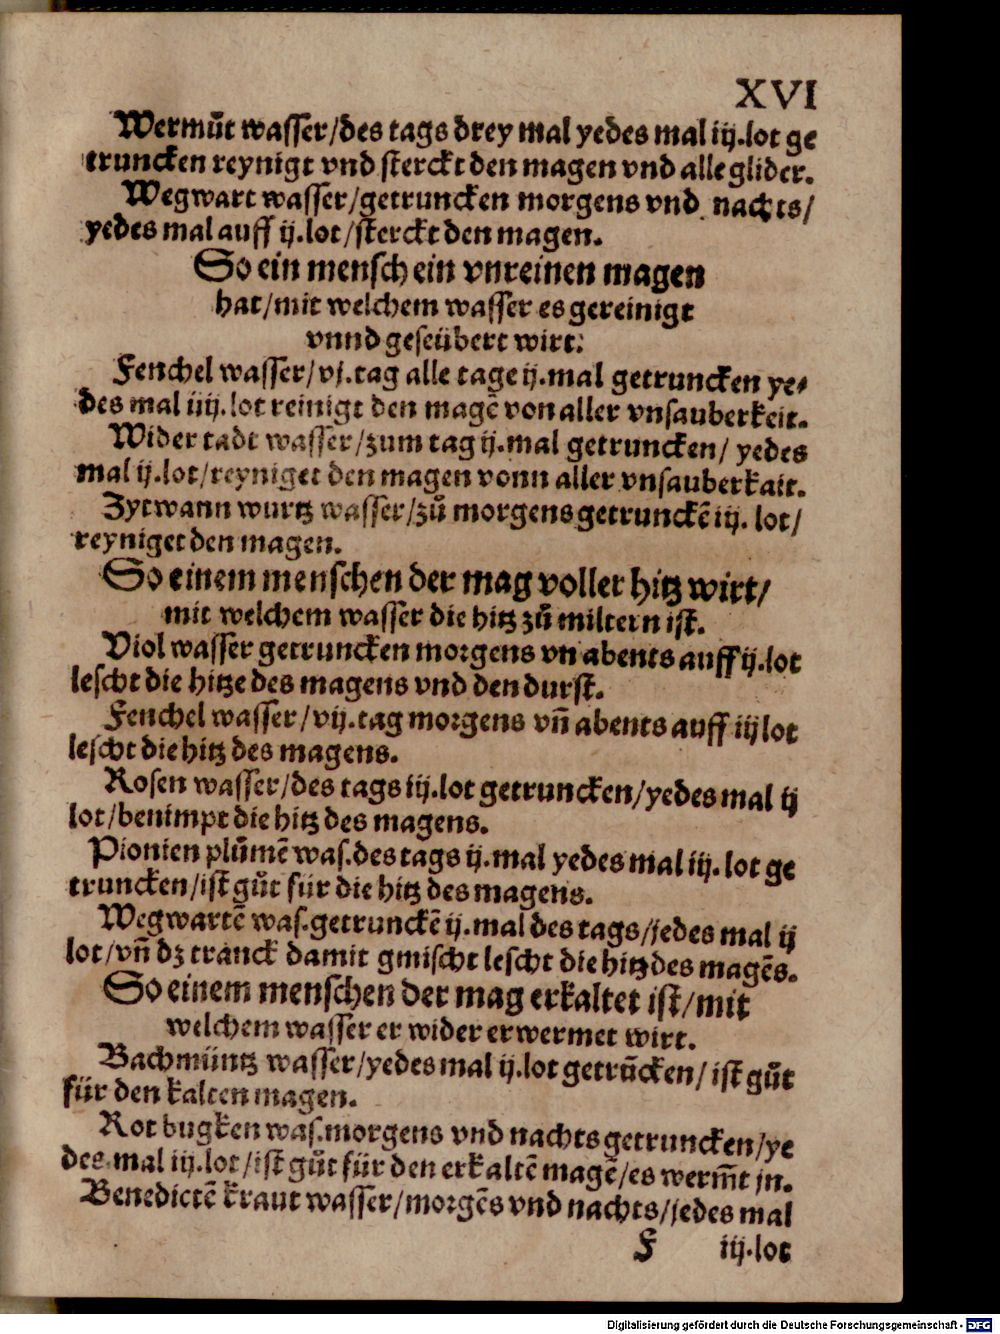 XVI
Wermůt wasser/des tags drey mal yedes mal iij.lot ge
truncken reynigt vnd sterckt den magen vnd alle glider.
Wegwart wasser/getruncken morgens vnd nachts/
yedes mal auff ij.lot/sterckt den magen.
So ein mensch ein vnreinen magen
hat/mit welchem wasser es gereinigt
vnnd geseübert wirt:
Fenchel wasser/vj.tag alle tage ij.mal getruncken ye-
des mal iiij.lot reinigt den magē von aller vnsauberkeit.
Wider tadt wasser/zum tag ij.mal getruncken/ yedes
mal ij.lot/reyniget den magen vonn aller vnsauberkait.
Zytwann wurtz wasser/zů morgens getrunckē iij. lot/
reyniget den magen.
So einem menschen der mag voller hitz wirt/
mit welchem wasser die hitz zů miltern ist.
Viol wasser getruncken morgens vn abents auff ij.lot
lescht die hitze des magens vnd den durst.
Fenchel wasser/vij.tag morgens vn̄ abents auff iij lot
lescht die hitz des magens.
Rosen wasser/des tags iij.lot getruncken/yedes mal ij
lot/benimpt die hitz des magens.
Pionien plůmē was.des tags ij.mal yedes mal iij. lot ge
truncken/ist gůt für die hitz des magens.
Wegwartē was.getrunckē ij.mal des tags/jedes mal ij
lot/vn̄ dz tranck damit gmischt lescht die hitz des magēs.
So einem menschen der mag erkaltet ist/mit
welchem wasser er wider erwermet wirt.
Bachmüntz wasser/yedes mal ij.lot getrūcken/ ist gůt
für den kalten magen.
Rot bugken was.morgens vnd nachts getruncken/ye
des mal iij.lot/ist gůt für den erkaltē magē/es werm̄t jn.
Benedictē kraut wasser/morgēs vnd nachts/jedes mal
F iij.lot
Digitalisierung gefördert durch die Deutsche Forschungsgemeinschaft - DFG